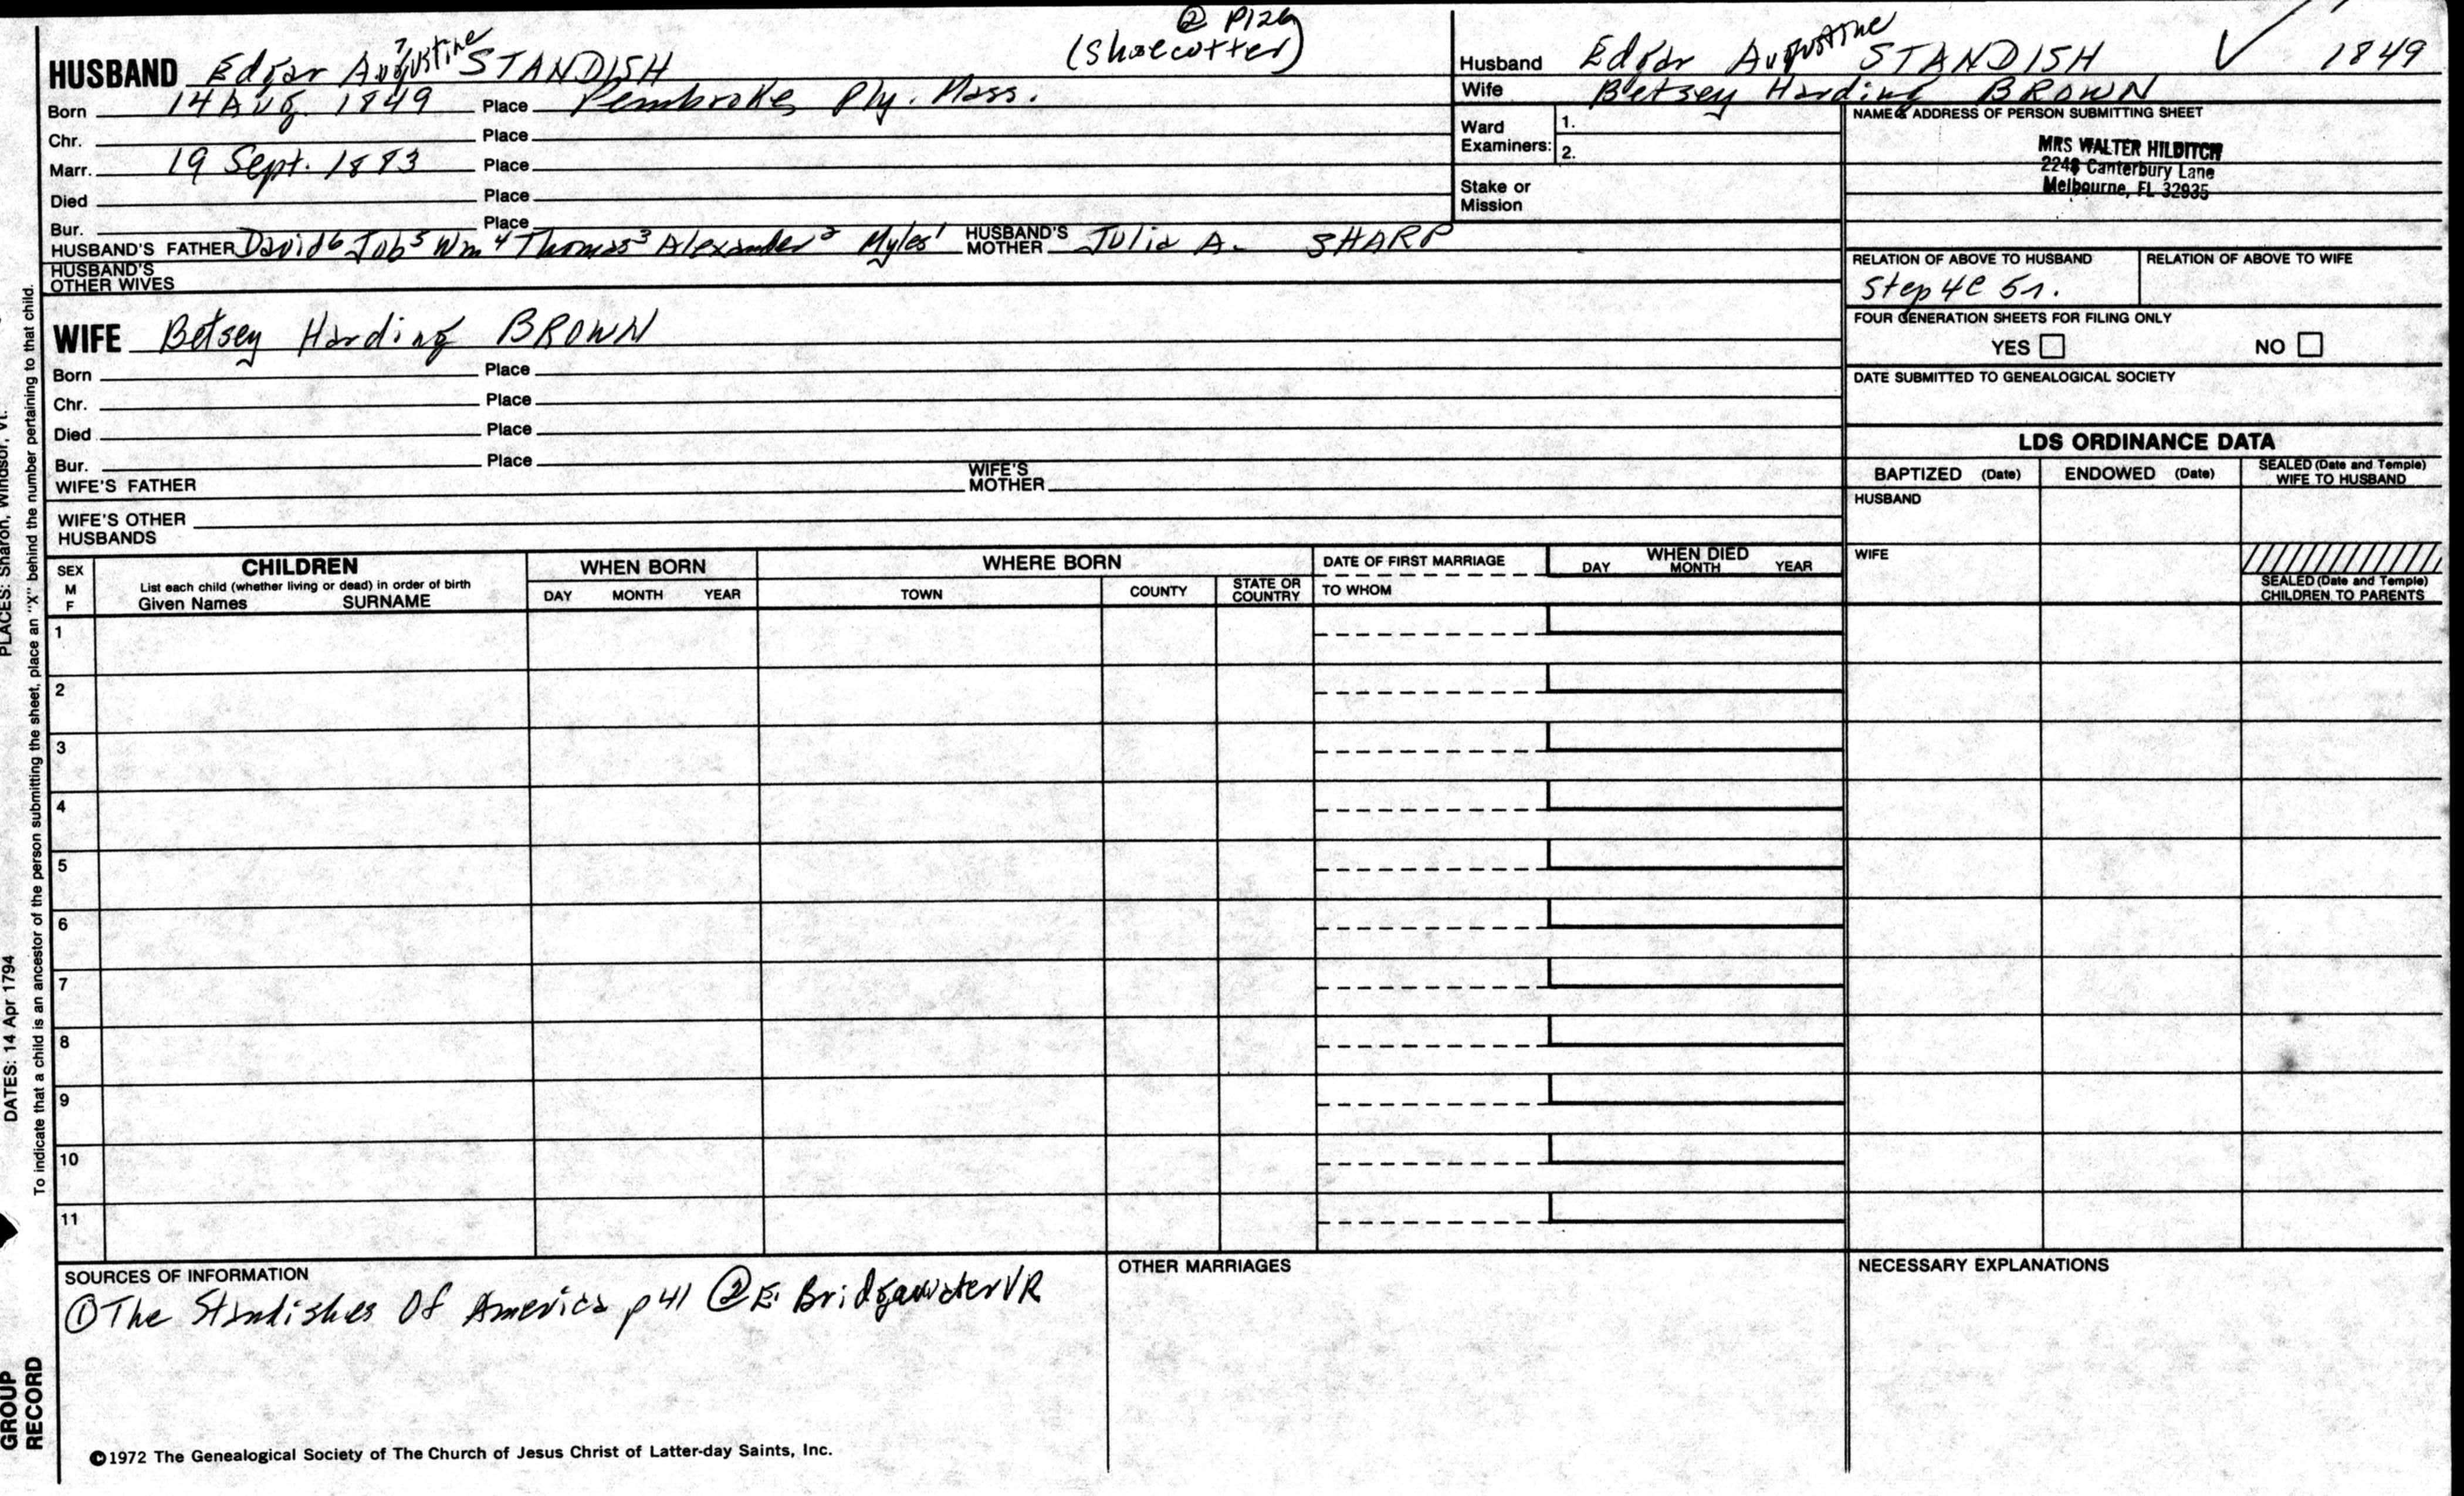 ② P126
(Shoecutter)
HUSBAND Edgar Augustine⁷ STANDISH
Born 14 Aug. 1849 Place Pembroke, Ply. Mass.
Chr. Place
Marr. 19 Sept. 1883 Place
Died Place
Bur. Place
HUSBAND'S FATHER David⁶ Job⁵ Wm⁴ Thomas³ Alexander² Myles¹ HUSBAND'S MOTHER Julia A. SHARP
HUSBAND'S OTHER WIVES
WIFE Betsey Harding BROWN
Born Place
Chr. Place
Died Place
Bur. Place
WIFE'S FATHER WIFE'S MOTHER
WIFE'S OTHER HUSBANDS
Husband Edgar Augustine STANDISH ✓ 1849
Wife Betsey Harding BROWN
Ward Examiners: 1.
2.
Stake or Mission
NAME & ADDRESS OF PERSON SUBMITTING SHEET
MRS WALTER HILDITCH
Canterbury Lane
Melbourne, FL 32935
RELATION OF ABOVE TO HUSBAND RELATION OF ABOVE TO WIFE
Step 4C 5r.
FOUR GENERATION SHEETS FOR FILING ONLY
YES NO
DATE SUBMITTED TO GENEALOGICAL SOCIETY
LDS ORDINANCE DATA
BAPTIZED (Date) ENDOWED (Date) SEALED (Date and Temple) WIFE TO HUSBAND
HUSBAND
WIFE
SEALED (Date and Temple) CHILDREN TO PARENTS
SEX M F
CHILDREN
List each child (whether living or dead) in order of birth
Given Names SURNAME
WHEN BORN
DAY MONTH YEAR
WHERE BORN
TOWN COUNTY STATE OR COUNTRY
DATE OF FIRST MARRIAGE
TO WHOM
WHEN DIED
DAY MONTH YEAR
1
2
3
4
5
6
7
8
9
10
11
SOURCES OF INFORMATION
① The Standishes Of America p41 ② E. Bridgewater VR
OTHER MARRIAGES
NECESSARY EXPLANATIONS
©1972 The Genealogical Society of The Church of Jesus Christ of Latter-day Saints, Inc.
PLACES: Sharon, Windsor, Vt.
DATES: 14 Apr 1794
To indicate that a child is an ancestor of the person submitting the sheet, place an "X" behind the number pertaining to that child.
GROUP
RECORD